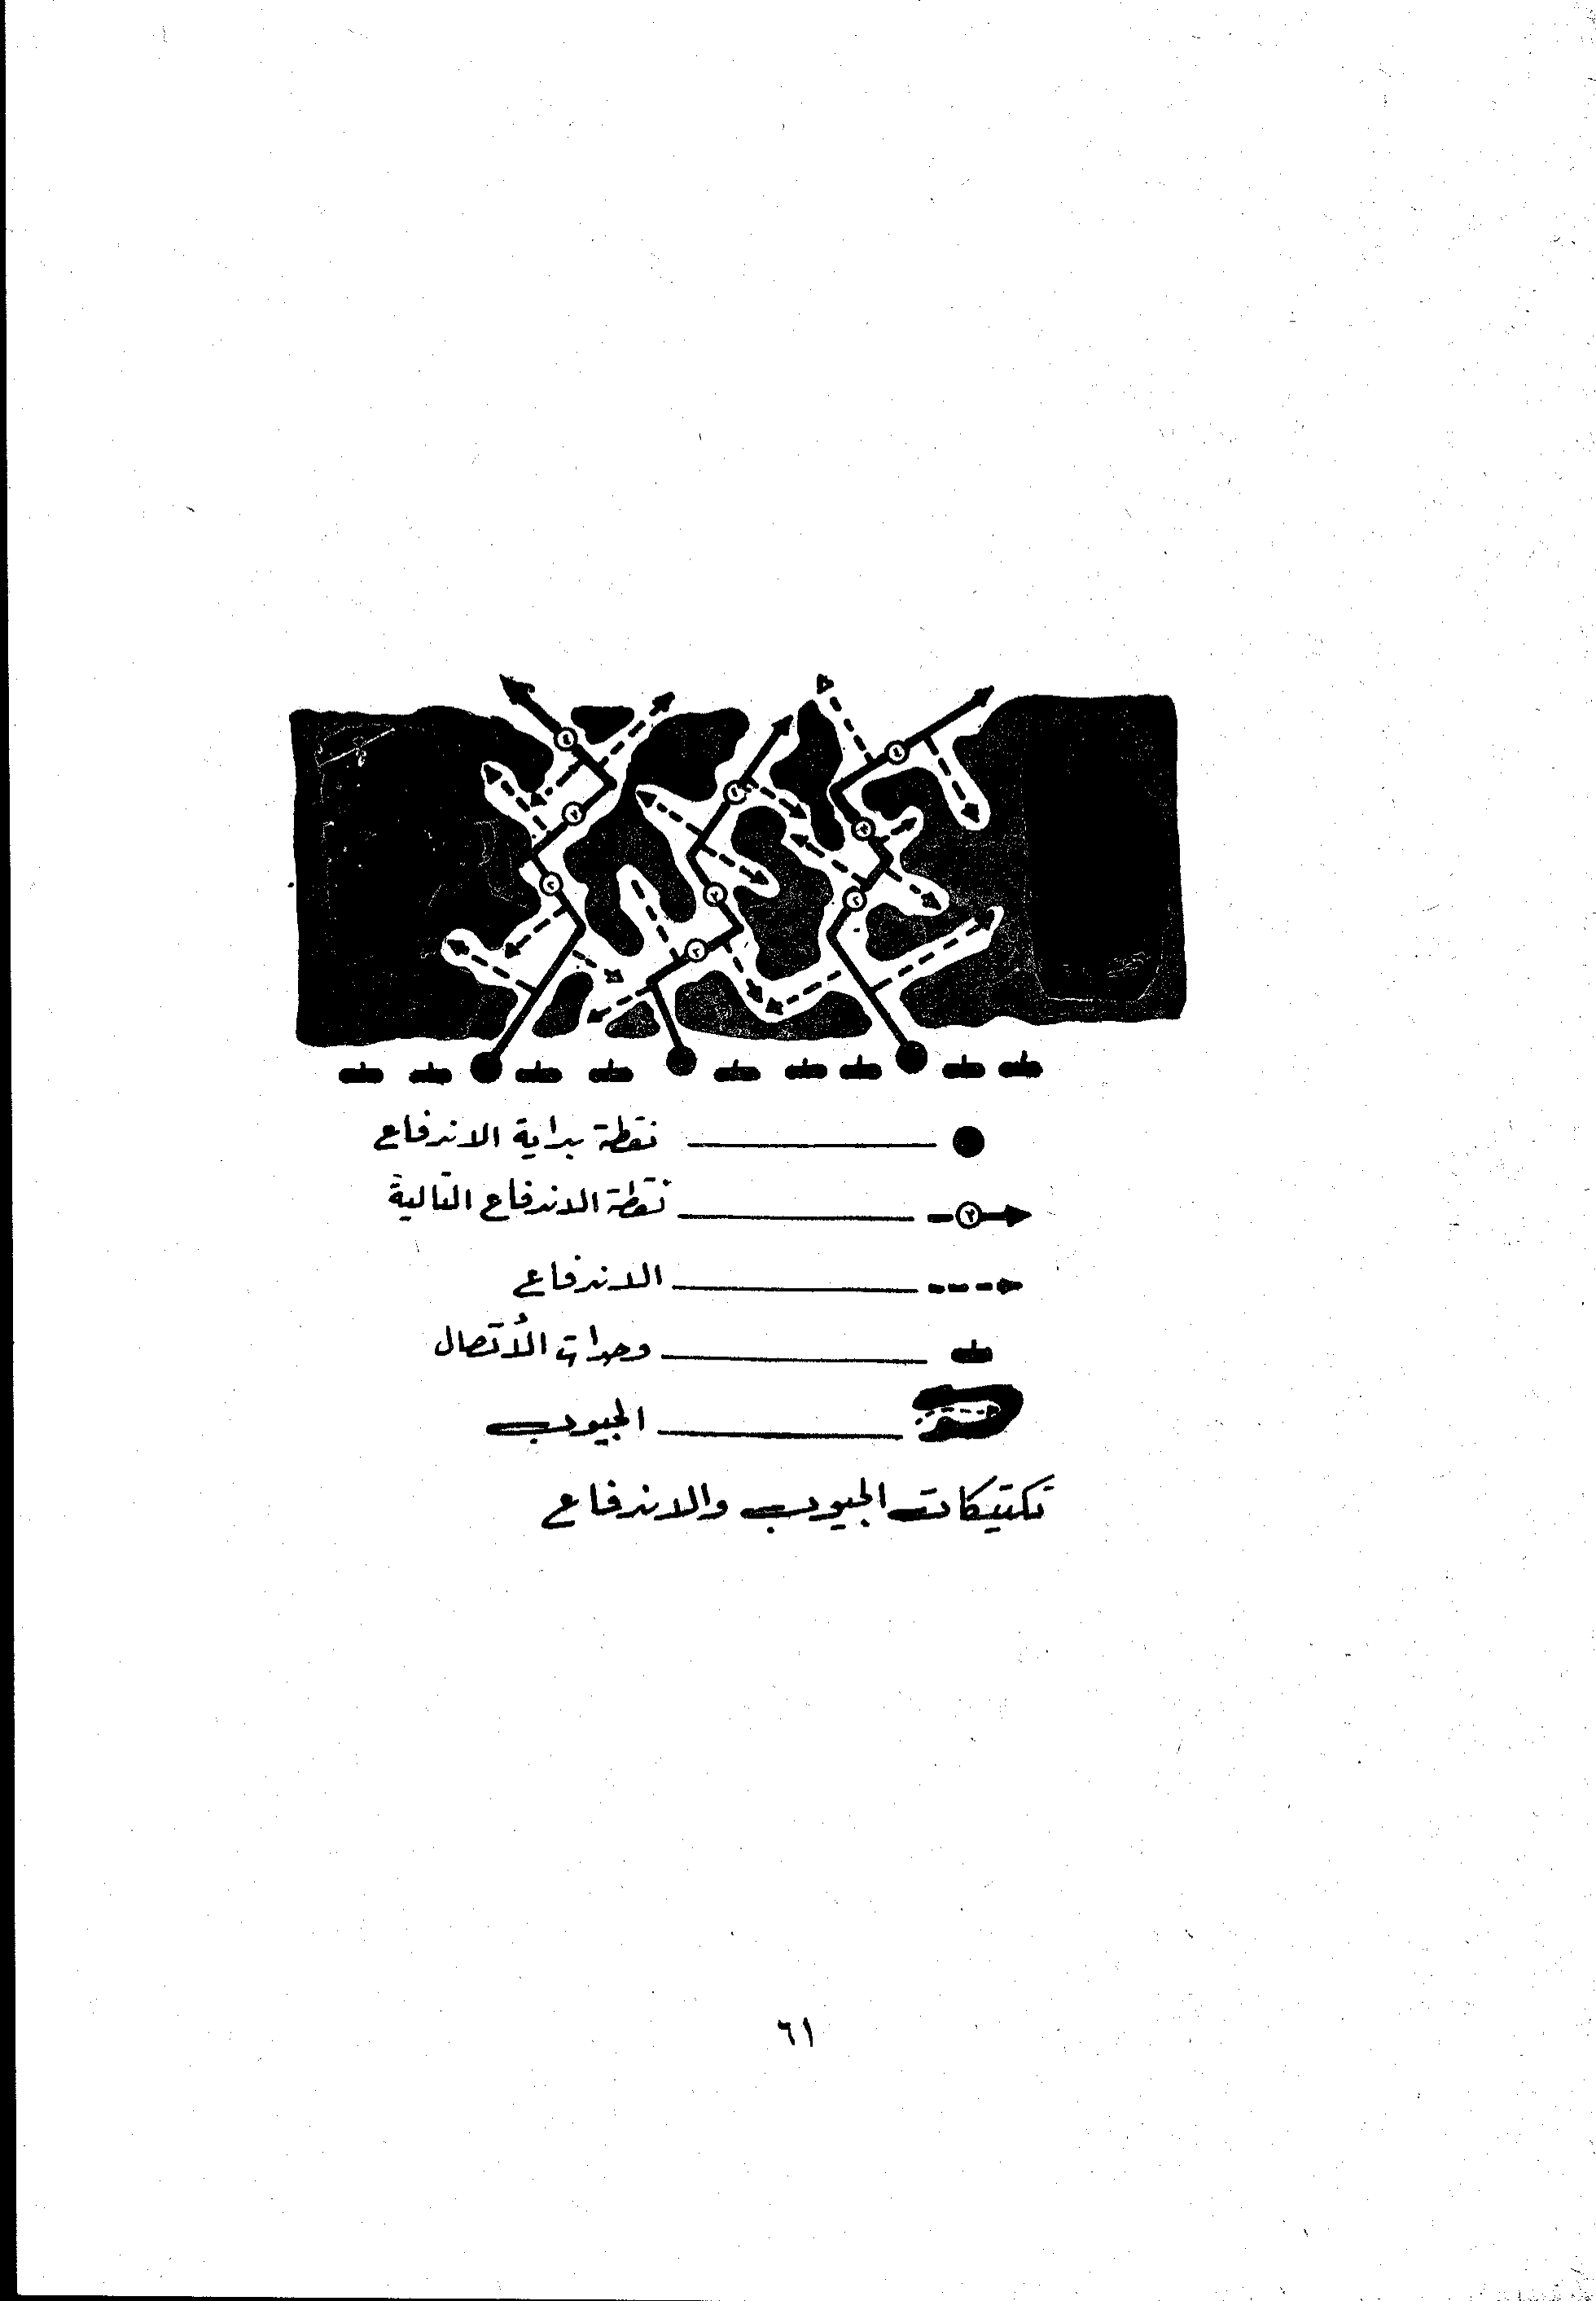 نقطة بداية الاندفاع
٢ نقطة الاندفاع التالية
الاندفاع
وحدات الأتصال
الجيوب
تكتيكات الجيوب والاندفاع
٦١